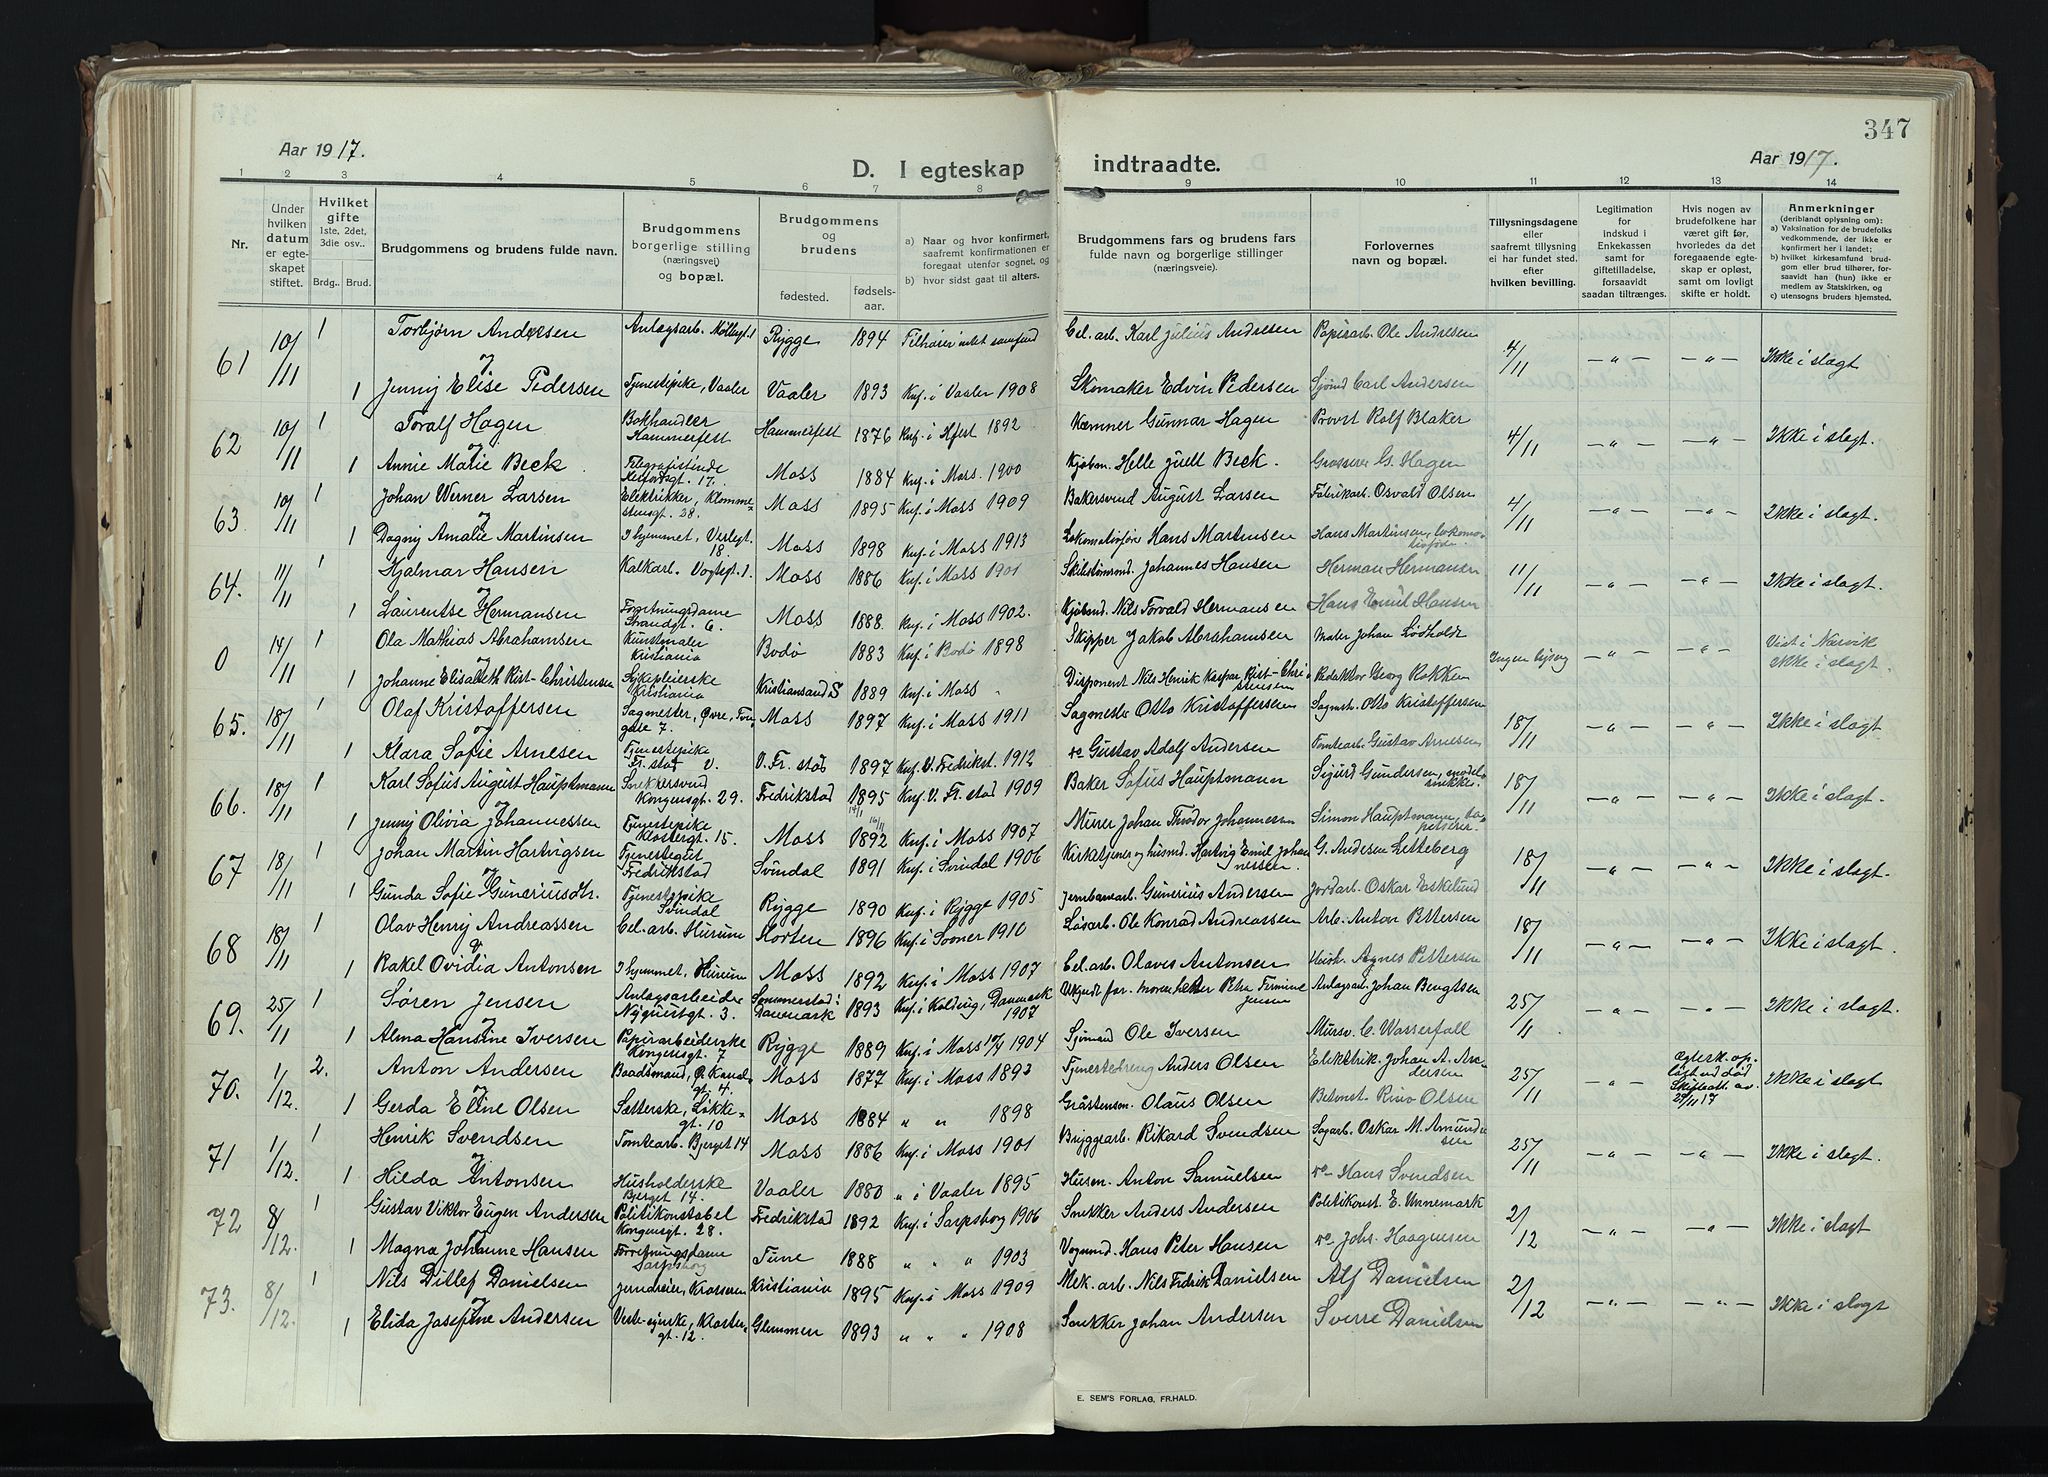 347
Aar 1917.
D. I egteskap indtraadte.
Aar 1917.
1 2 3 4 5 6 7 8 9 10 11 12 13 14
Nr.
Under hvilken datum er egteskapet stiftet.
Hvilket gifte 1ste, 2det, 3die osv..
Brdg.. Brud.
Brudgommens og brudens fulde navn.
Brudgommens borgerlige stilling (næringsvei) og bopæl.
Brudgommens og brudens
fødested. fødselsaar.
a) Naar og hvor konfirmert, saafremt konfirmationen er foregaat utenfor sognet, og
b) hvor sidst gaat til alters.
Brudgommens fars og brudens fars fulde navn og borgerlige stillinger (næringsveie).
Forlovernes navn og bopæl.
Tillysningsdagene eller saafremt tillysning ei har fundet sted. efter hvilken bevilling.
Legitimation for indskud i Enkekassen samt for giftetilladelse, forsaavidt saadan tiltrænges.
Hvis nogen av brudefolkene har været gift før, hvorledes da det foregaaende egteskap er opløst, samt om lovligt skifte er holdt.
Anmerkninger (deriblandt oplysning om):
a) Vaksination for de brudefolks vedkommende, der ikke er konfirmert her i landet;
b) hvilket kirkesamfund brudgom eller brud tilhører, forsaavidt han (hun) ikke er medlem av Statskirken, og
c) utensogns bruders hjemsted.
61 10/11 1 Torbjørn Andersen Anlagsarb. Rygge 1894 Tilhører intet samfund Cel. arb. Karl Julius Andresen Papirarb. Ole Andresen 4/11 — „ — — „ — Ikke i slagt
og
1 Jenny Elise Pedersen Tjenestepike, Vaaler Vaaler 1893 Knf. i Vaaler 1908 Skomaker Edvin Pedersen Sjömd Carl Andersen
62 10/11 1 Toralf Hagen Bokhandler Hammerfest Hammerfest 1876 Knf. i Hfest 1892 Kæmner Gunnar Hagen Provst Rolf Blaker 4/11 — „ — — „ — Ikke i slagt.
og
1 Annie Marie Beck Telegrafistinde 17. Moss 1884 Knf. i Moss. 1900 Kjöbm. Helle Juell Beck. Grosserer G. Hagen
63 10/11 1 Johan Werner Larsen Elektrikker, Klommestensgt. 28. Moss 1895 Knf. i Moss 1909 Bakersvend August Larsen Fabrikarb. Osvald Olsen 4/11 — „ — — „ — Ikke i slagt.
og
1 Dagny Amalie Martinsen I hjemmet, Verlegt. 18. Moss 1898 Knf. i Moss 1913 Lokomotivför Hans Martinsen Hans Martinsen, lokomo
64. 11/11 1 Hjalmar Hansen Kalkarb. Vogtsgt. 1. Moss 1886 Knf. i Moss 1901 Johannes Hansen Herman Hermansen 11/11 — „ — — „ — Ikke i slagt.
og
1 Laurentse Hermansen Forretningsdame Strandgt. 6. Moss 1888. Knf. i Moss 1902. Kjöbmd. Nils Torvald Hermansen Hans Emil Hansen
0 14/11 1 Ola Mathias Abrahamsen Kunstmaler Kristiania Bodö 1883 Knf. i Bodö 1898 Skipper Jakob Abrahamsen Maler Johan Lödholdt Ingen lysng — „ — — „ — Viet i Narvik Ikke i slagt.
og
1 Johanne Elisabeth Rist-Christensen Sykepleierske Kristiania Kristiansand S 1889 Knf. i Moss „ Disponent Nils Henrik Kaspar Rist-Christensen Redaktör Georg Rokken
65. 18/11 1 Olaf Kristoffersen Sagmester, Övre, Torvgate 7. Moss 1897 Knf. i Moss 1911 Sagmester Otto Kristoffersen Sagmst. Otto Kristoffersen 18/11 — „ — — „ — Ikke i slagt
og
1 Klara Sofie Arnesen Tjenestepike Fr. stad V. V. Fr. stad 1897 Knf. V. Fredrikst. 1912 Gustav Adolf Andersen Tomtearb. Gustav Arnesen
66. 18/11 1 Karl Sofus August Hauptmann Snekkersvend Kongensgt. 29. Fredrikstad 1895 Knf. V. Fr. stad 1909 Baker Sofus Hauptmann Sigurd Gundersen, modelsnikker 18/11 — „ — — „ — Ikke i slagt.
og
1 Jenny Olivia Johannessen Tjenestepike Klostergt. 15. Moss 1892 Knf. i Moss 1907 Murer Johan Thodor Johannessen Simon Hauptmann, tapetserer
67 18/11 1 Johan Martin Hartvigsen Tjenestegut Fredrikstad Svindal 1891 Knf. i Svindal 1906 Kirketjener og husmd. Hartvig Emil Johannessen G. Andersen Letteberg 18/11 — „ — — „ — Ikke i slagt.
og
1 Gunda Sofie Gunariusdtr. Tjenestepike Svindal Rygge 1890 Knf. i Rygge 1905 Jernbanearb. Gunerius Andersen Jordarb. Oskar Eskelund
68 18/11 1 Olav Henry Andreassen Cel. arb. Hurum Horten 1896 Knf. i Sooner 1910 Lösarb. Ole Konrad Andreassen Arb. Anton Pettersen 18/11 — „ — — „ — Ikke i slagt.
og
1 Rakel Ovidia Antonsen I hjemmet, Hurum Moss 1892 Knf. i Moss 1907 Cel. arb. Olaves Antonsen Agnes Pettersen
69. 25/11 1 Sören Jensen Anlagsarbeider Nyquistgt. 3. Sommersted i Danmark 1893 Knf. i Kolding, Danmark 1907 Ukjendt far. moren heter Petra Jensen Anlagsar. Johan Bengtsen 25/11 — „ — — „ — Ikke i slagt.
og
1 Alma Hansine Iversen Papirarbeiderske Kongensgt. 7 Rygge 1889 Knf. i Moss 10/4 1904 Sjömand Ole Iversen Mursv. C. Wasserfall
70. 1/12. 2. Anton Andersen Baadsmand, Ö. Kanalgt. 4. Moss 1877 Knf. i Moss 1893 Tjenestedreng Anders Olsen Elektrik. Johan A. Andersen 25/11 — „ — Egtesk. oplöst ved död Skifteatt. av 27/11 17 Ikke i slagt
og
1 Gerda Eline Olsen Sætterske, Lökkegt. 10 Moss 1884 „ „ 1898 Olaus Olsen Betonst. Olsen
71 1/12. 1 Henrik Svendsen Tomtearb. Bjerget 14 Moss 1886 Knf. i Moss 1901 Bryggearb. Rikard Svendsen Sagarb. Oskar M. Amundsen 25/11 — „ — — „ — Ikke i slagt.
og
1 Hilda Antonsen Husholderske Bjerget 14. Vaaler 1880 „ i Vaaler 1895 Husm. Anton Samuelsen Hans Svendsen
72 8/12. 1 Gustav Viktor Eugen Andersen Politikonstabel Kongensgt. 28. Fredrikstad 1892 Knf. i Sarpsborg 1906 Snekker Anders Andersen Politikonst. E. Unnemark 2/12 — „ — — „ — Ikke i slagt
1 Magna Johanne Hansen Forretningsdame Sarpsborg Tune 1888 „ „ „ 1903 Vognmd. Hans Peter Hansen Johs. Haagensen
73. 8/12. 1 Nils Ditlef Danielsen Jerndreier, Krosseren Kristiania 1895 Knf. i Moss 1909 Mek. arb. Nils Fidrik Danielsen Alf Danielsen 2/12 — „ — — „ — Ikke i slagt
og
1 Elida Josefine Andersen Klostergt. 12. Glemmen 1893 „ „ „ 1908 Snekker Johan Andersen Sverre Danielsen
E. SEM'S FORLAG, FR.HALD.